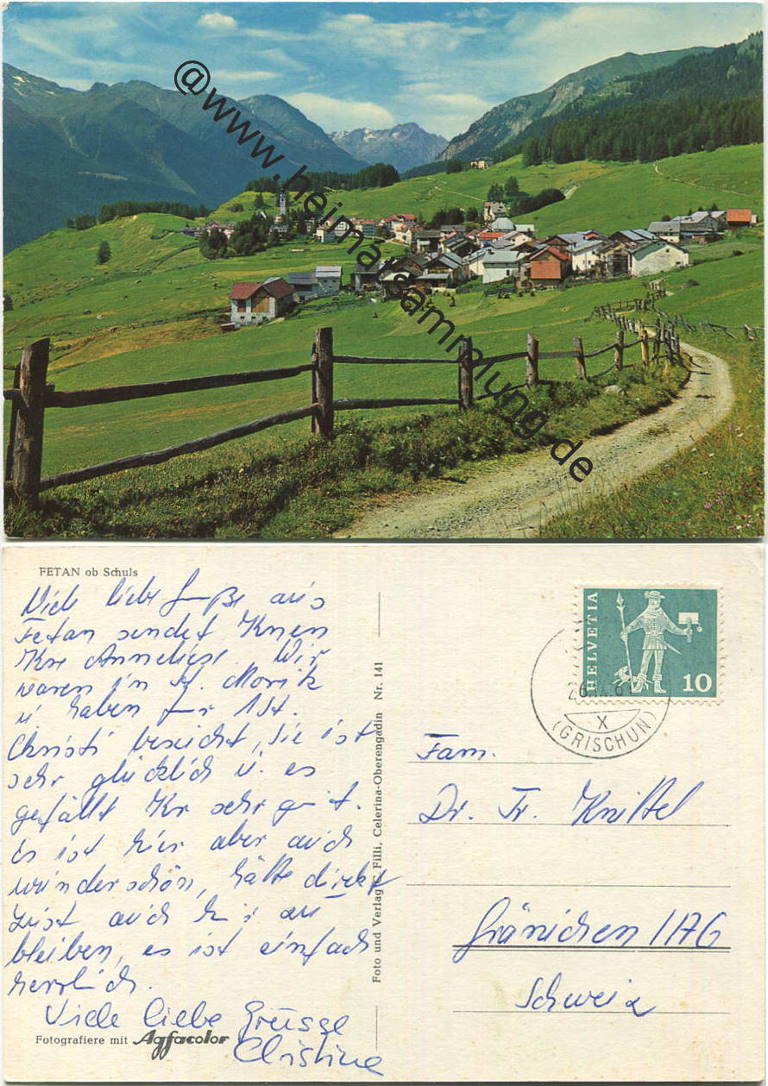 @www.heimatsammlung.de
FETAN ob Schuls
Viele liebe Grüße aus
Fetan sendet Ihnen
Ihre Anneliese. Wir
waren in St. Moritz
u. haben für 1 St.
Christi besucht, sie ist
sehr glücklich u. es
gefällt ihr sehr gut.
Es ist hier aber auch
wunderschön, hätte direkt
Lust auch hier zu
bleiben, es ist einfach
herrlich.
Viele liebe Grüsse
Christine
Fotografiere mit Agfacolor
Foto und Verlag F. Filli, Celerina-Oberengadin Nr. 141
HELVETIA
10
X
(GRISCHUN)
Fam.
Dr. Fr. Knittel
Gränichen / AG
Schweiz